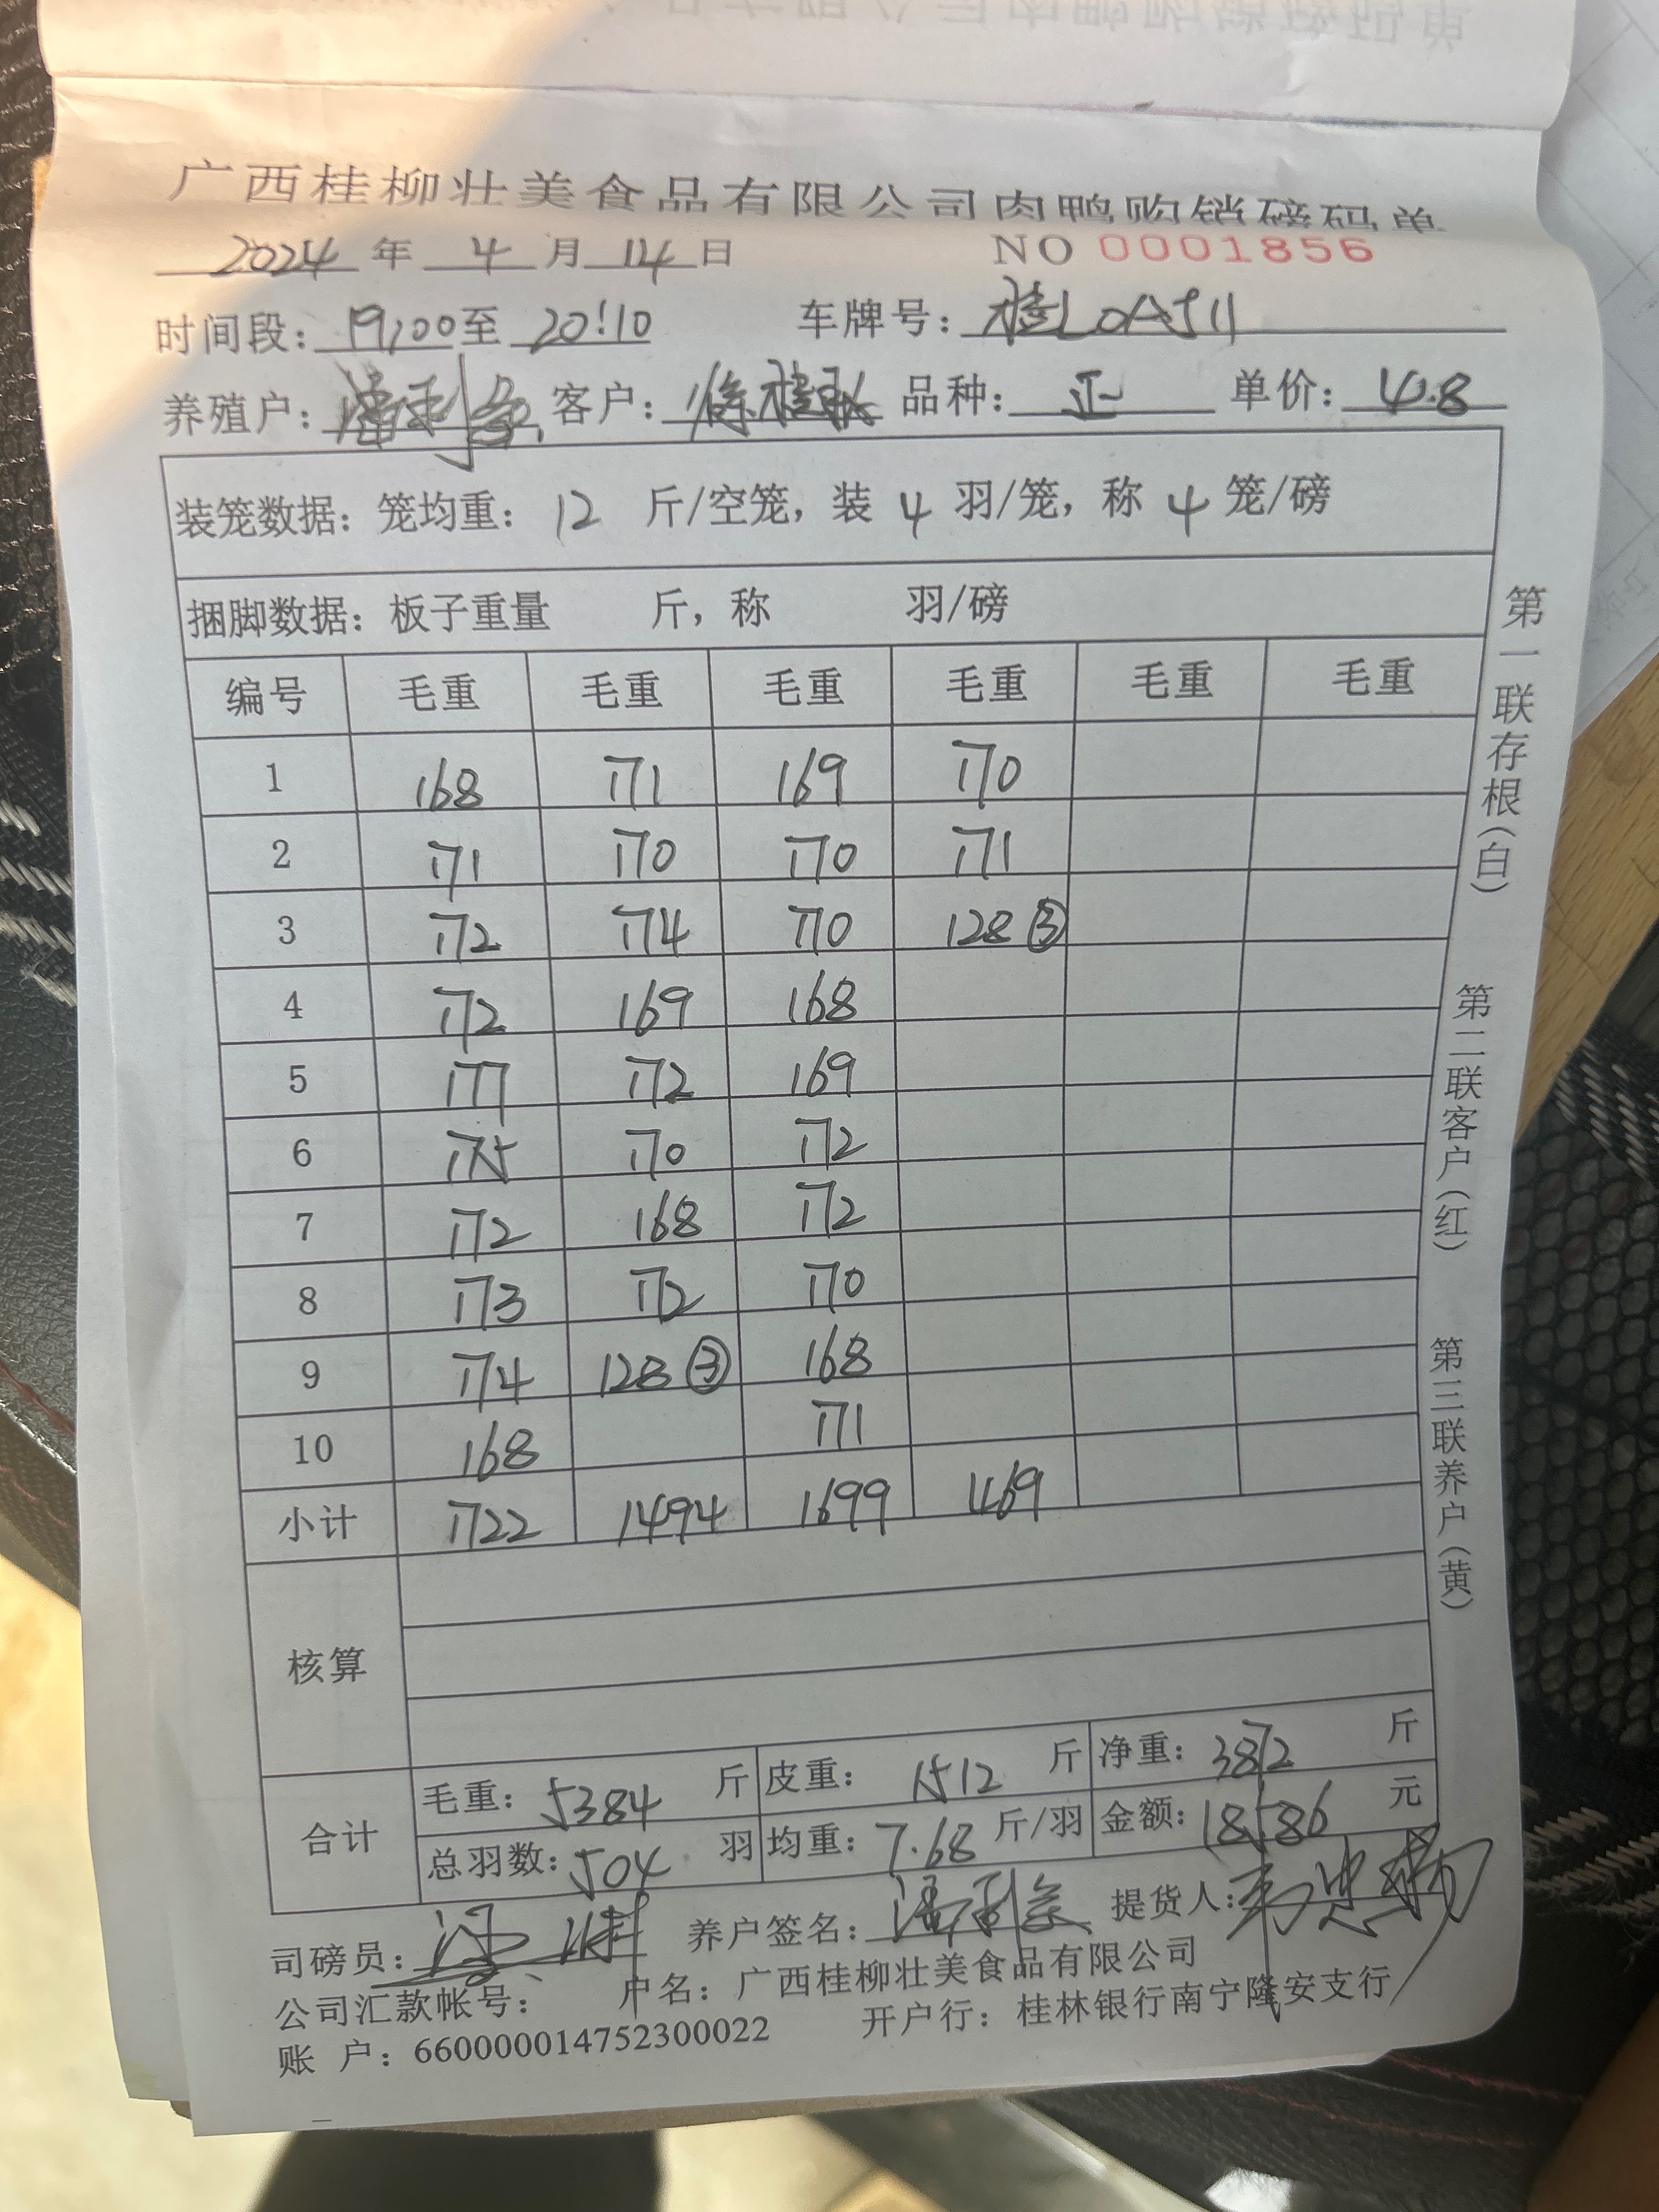 广西桂柳壮美食品有限公司肉鸭购销磅码单
2024 年 4 月 14 日 NO 0001856
时间段: 19:00 至 20:10 车牌号: 桂L0A511
养殖户: 客户: 徐桂 品种: 正 单价: 4.8
装笼数据: 笼均重: 12 斤/空笼, 装 4 羽/笼, 称 4 笼/磅
捆脚数据: 板子重量 斤, 称 羽/磅
编号 毛重 毛重 毛重 毛重 毛重 毛重
1 168 171 169 170
2 171 170 170 171
3 172 174 170 128 ③
4 172 169 168
5 177 172 169
6 175 170 172
7 172 168 172
8 173 172 170
9 174 128 ③ 168
10 168 171
小计 1722 1494 1699 469
核算
合计
毛重: 5384 斤 皮重: 1512 斤 净重: 3872 斤
总羽数: 504 羽 均重: 7.68 斤/羽 金额: 18586 元
司磅员: 养户签名: 提货人:
公司汇款帐号: 户名: 广西桂柳壮美食品有限公司
账 户: 660000014752300022 开户行: 桂林银行南宁隆安支行
第一联存根(白)
第二联客户(红)
第三联养户(黄)